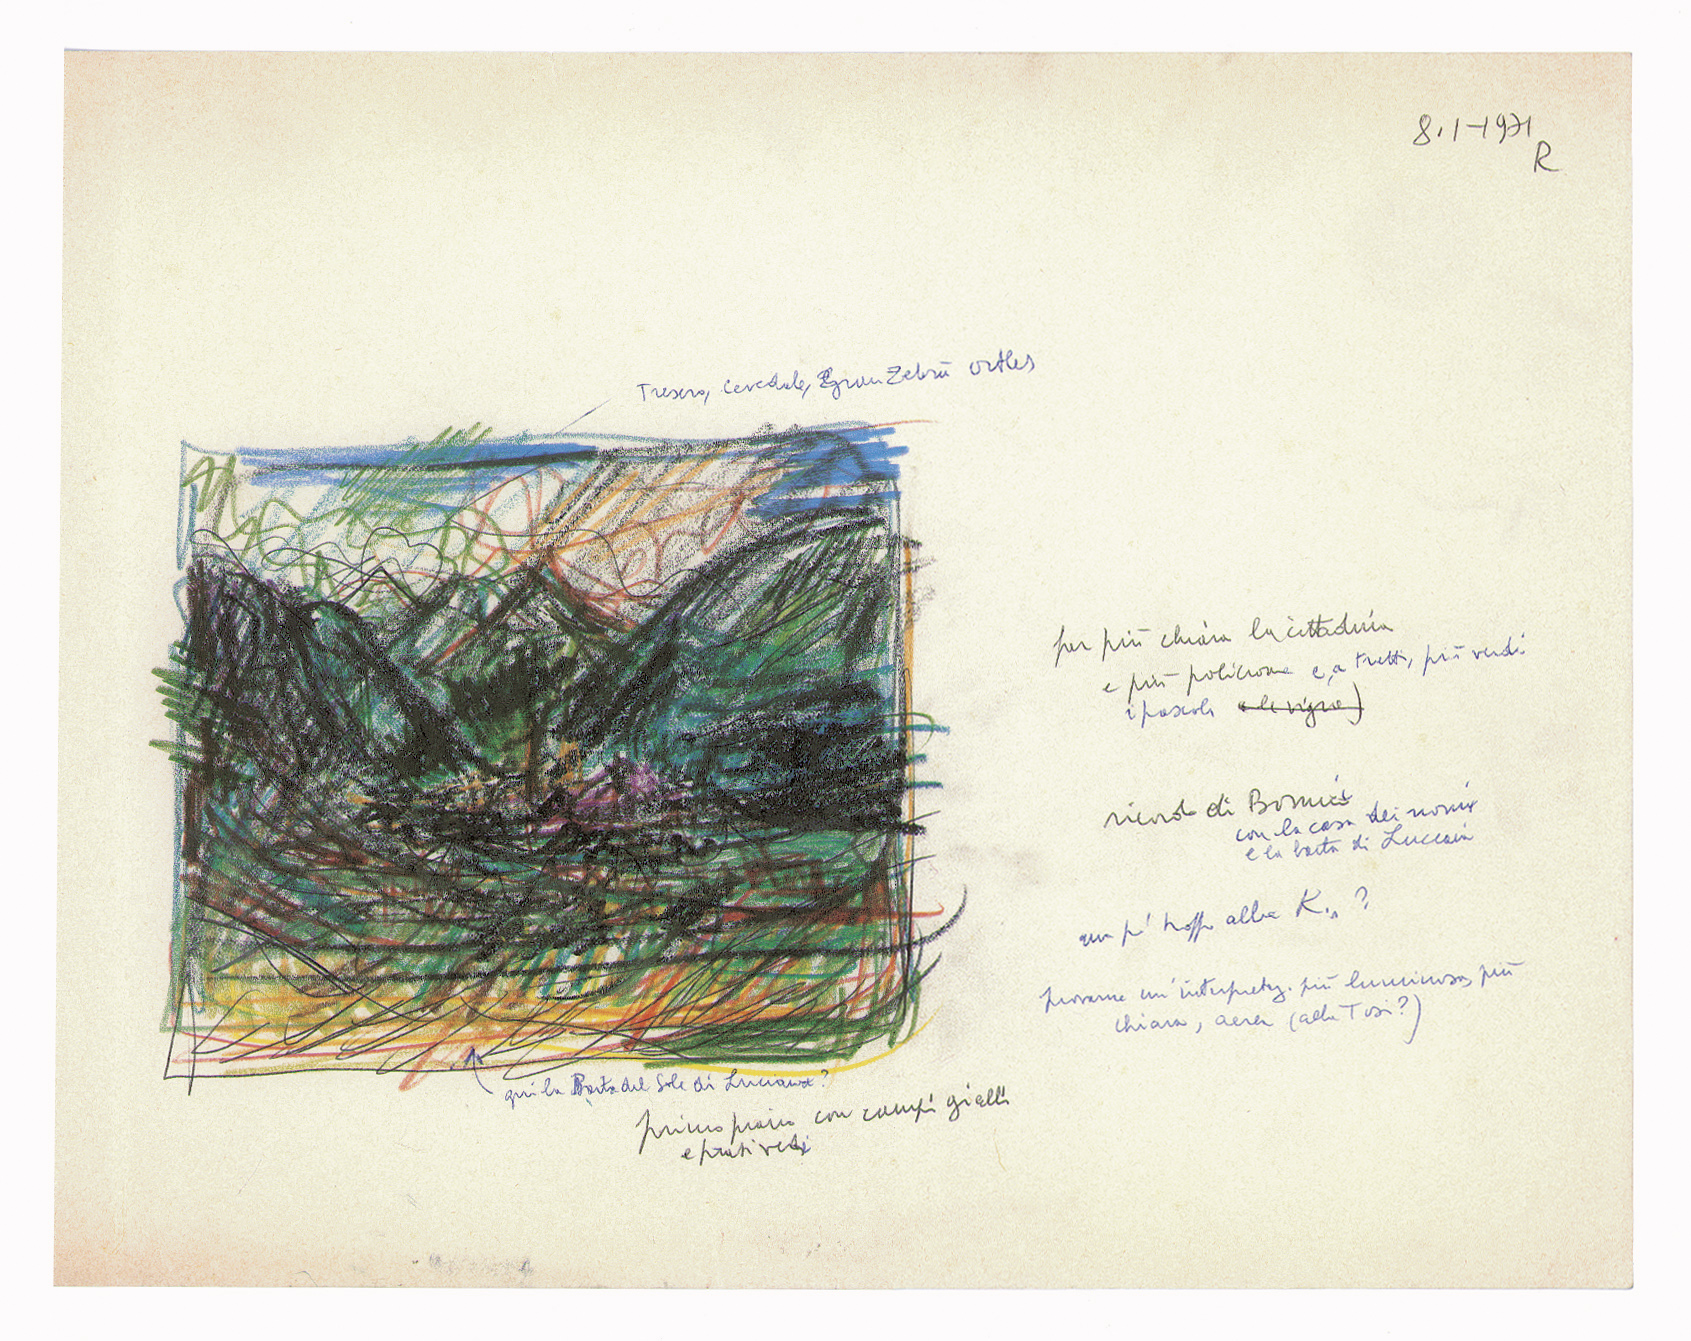 8.1-1971
R
Tresero, Cevedale, Gran Zebrù Ortles
per più chiara la cittadina
e più policrome e, a tratti, più verdi
i pascoli e le vigne)
ricordo di Bormio
con la casa dei nonni
e la baita di
un po' troppo alla K. ?
provarne un'interpretaz. più luminosa, più
chiara, aerea (alla Tosi?)
qui la Baita del Sole di Luciana?
primo piano con campi gialli
e prati verdi